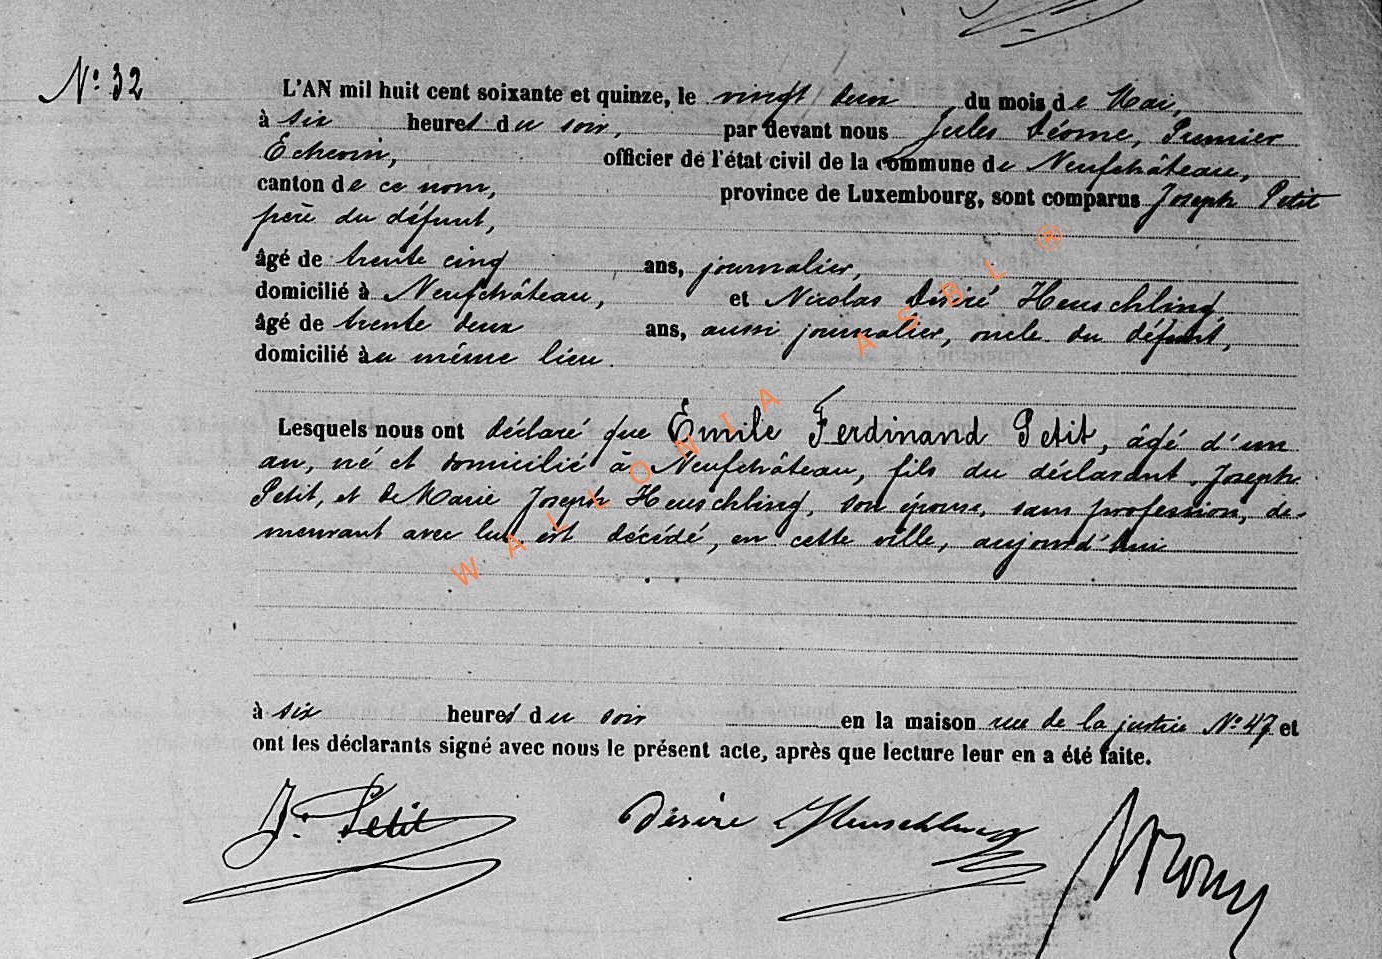 N° 32
L'AN mil huit cent soixante et quinze, le vingt deux du mois de Mai,
à six heures du soir, par devant nous Jules Déome, Premier
Echevin, officier de l'état civil de la commune de Neufchâteau,
canton de ce nom, province de Luxembourg, sont comparus Joseph Petit
père du défunt,
âgé de trente cinq ans, journalier,
domicilié à Neufchâteau, et Nicolas Désiré Heuschling,
âgé de trente deux ans, aussi journalier, oncle du défunt,
domicilié au même lieu.
Lesquels nous ont déclaré que Émile Ferdinand Petit, âgé d'un
an, né et domicilié à Neufchâteau, fils du déclarant, Joseph
Petit, et de Marie Joseph Heuschling, son épouse, sans profession, de-
meurant avec lui est décédé, en cette ville, aujourd'hui
à six heures du soir en la maison rue de la justice N° 47 et
ont les déclarants signé avec nous le présent acte, après que lecture leur en a été faite.
Jh Petit Désiré Heuschling
WALLONIA ASBL ®